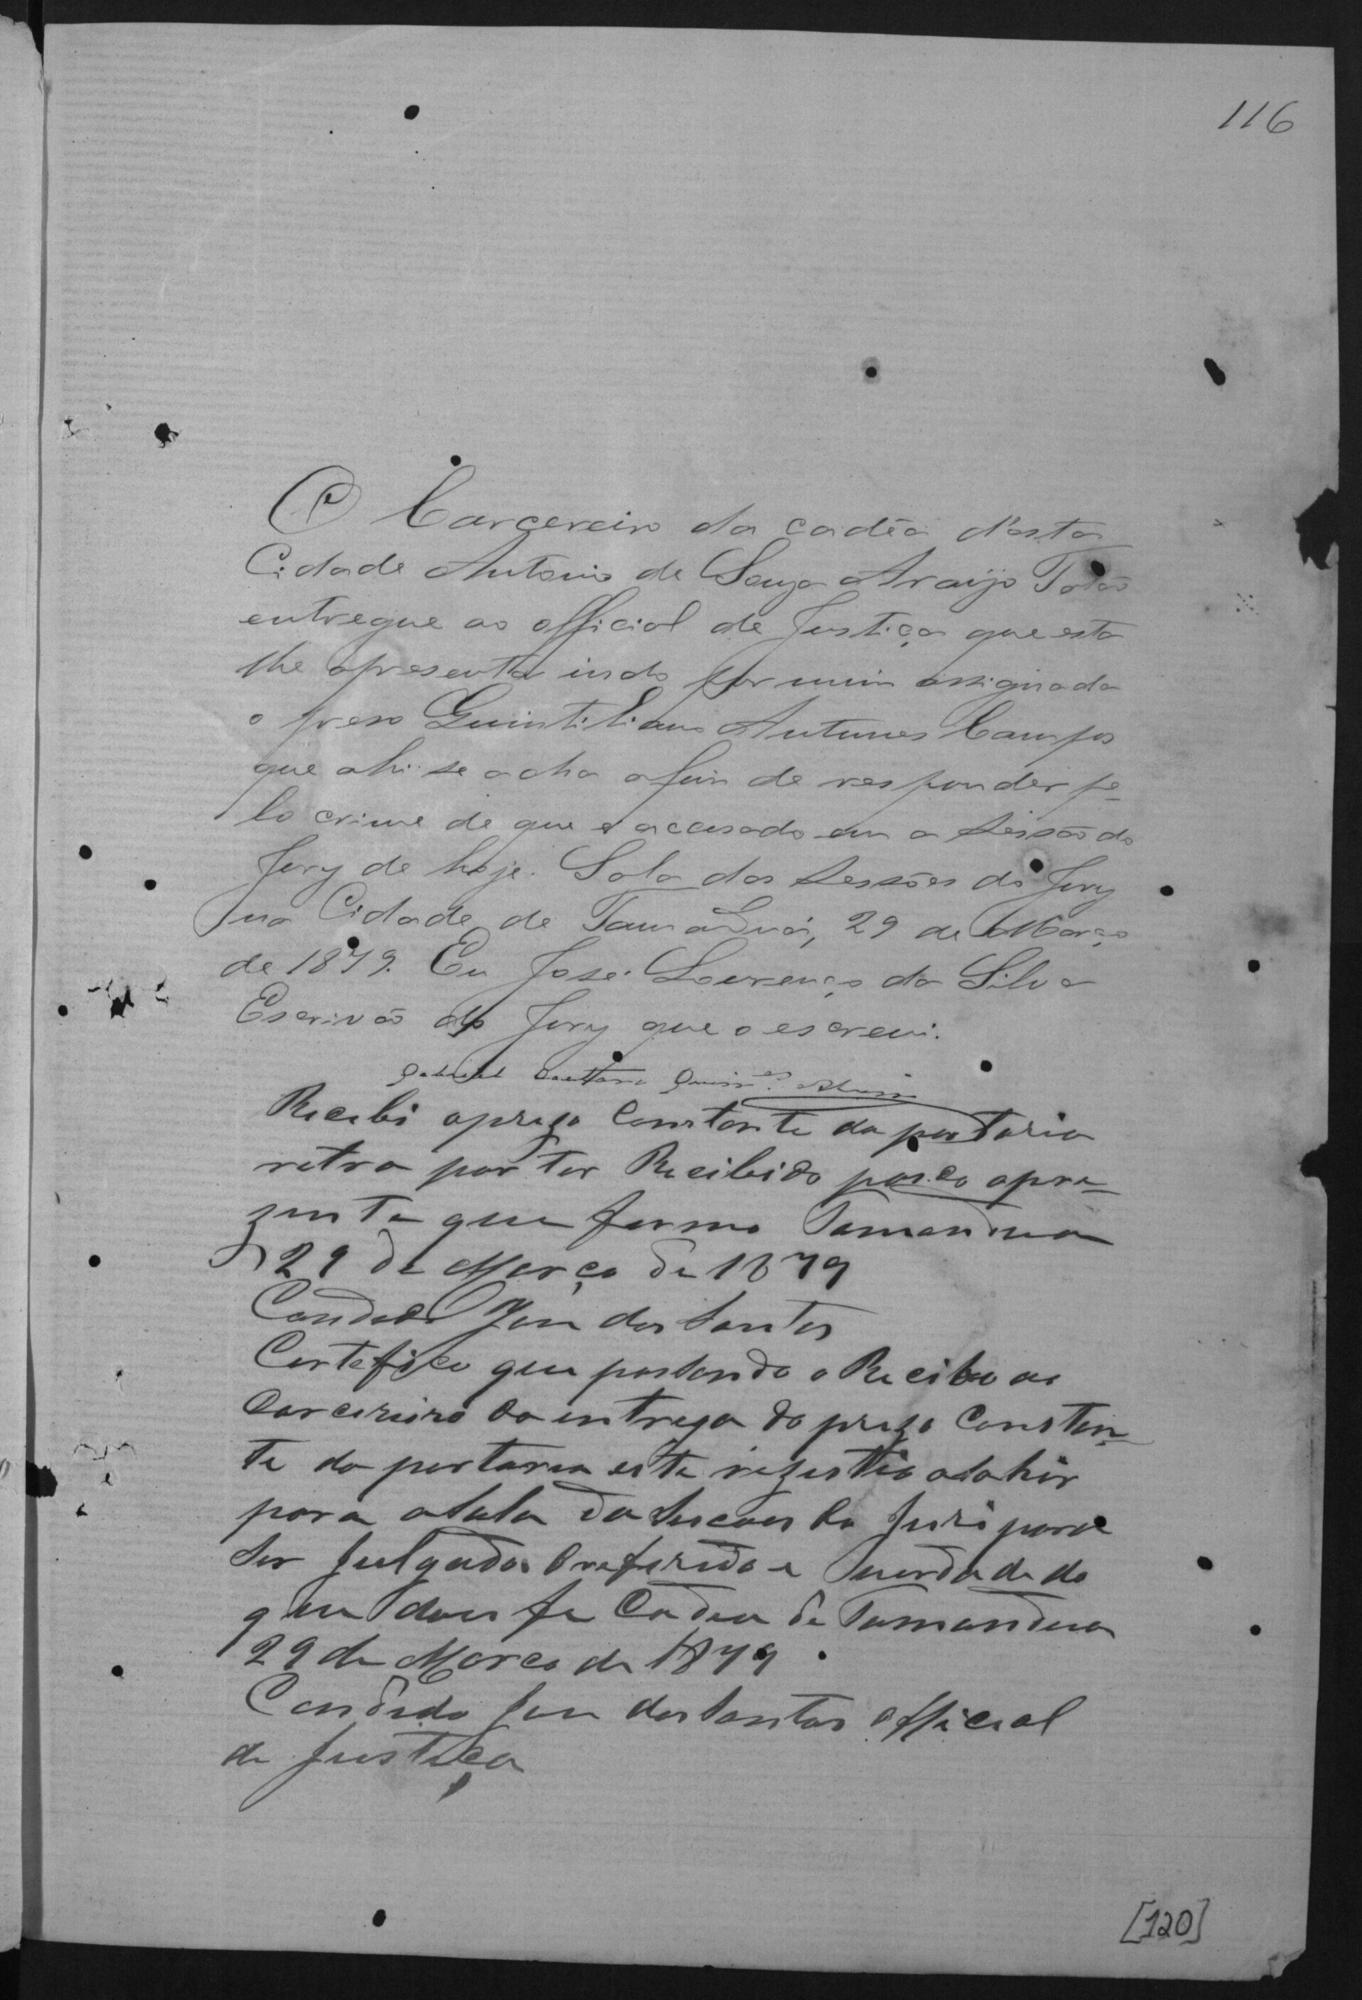 116
O Carcereiro da cadêa d'esta
Cidade Antonio de Souza Araujo Totão
entregue ao official de Justiça que esta
lhe apresenta indo por mim assignada
o preso Quintiliano Antunes Campos
que ahi se acha afim de responder pe-
lo crime de que é accusado em a Sessão do
Jury de hoje. Sala das Sessões do Jury
na Cidade de Tamanduá, 29 de Março
de 1879. Eu José Lourenço da Silva
Escrivão do Jury que o escrevi.
Gabriel Caetano
Recebi o prezo Constante da portaria
retra por ter Recibido paço o apre-
zente que firmo Tamandua
29 de Março de 1879
Candido José dos Santos
Certefico que passando o Recibo ao
Carcereiro da entrega do prezo Constan-
te da portaria este
para a sala da do Juri para
ser julgado O referido e verdade do
que dou fe Cadea de Tamandua
29 de Marco de 1879
Candido José dos Santos Official
de Justiça
[120]